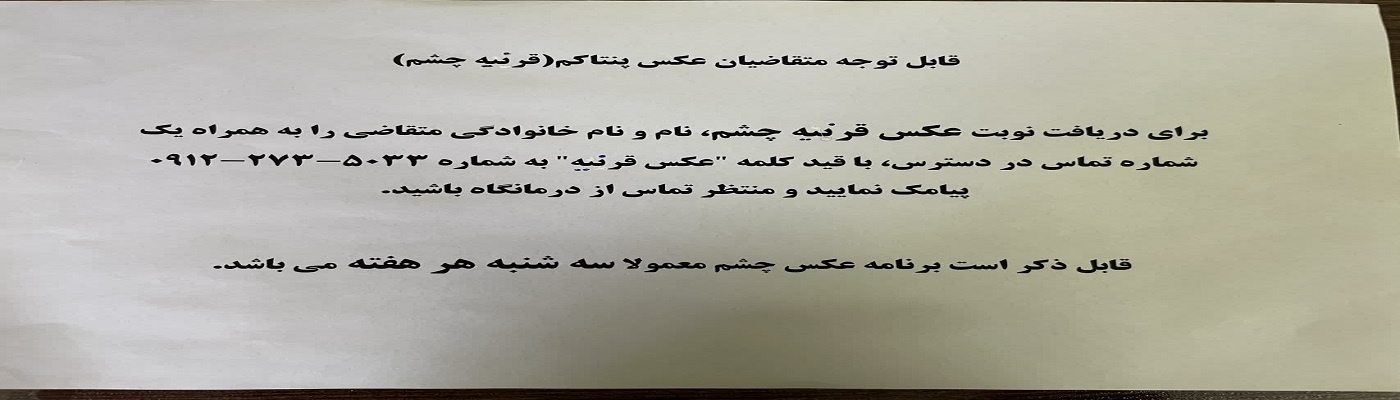 قابل توجه متقاضیان عکس پنتاکم(قرنیه چشم)
برای دریافت نوبت عکس قرنیه چشم، نام و نام خانوادگی متقاضی را به همراه یک
شماره تماس در دسترس، با قید کلمه "عکس قرنیه" به شماره ۵۰۳۳–۲۷۳–۰۹۱۲
پیامک نمایید و منتظر تماس از درمانگاه باشید.
قابل ذکر است برنامه عکس چشم معمولا سه شنبه هر هفته می باشد.